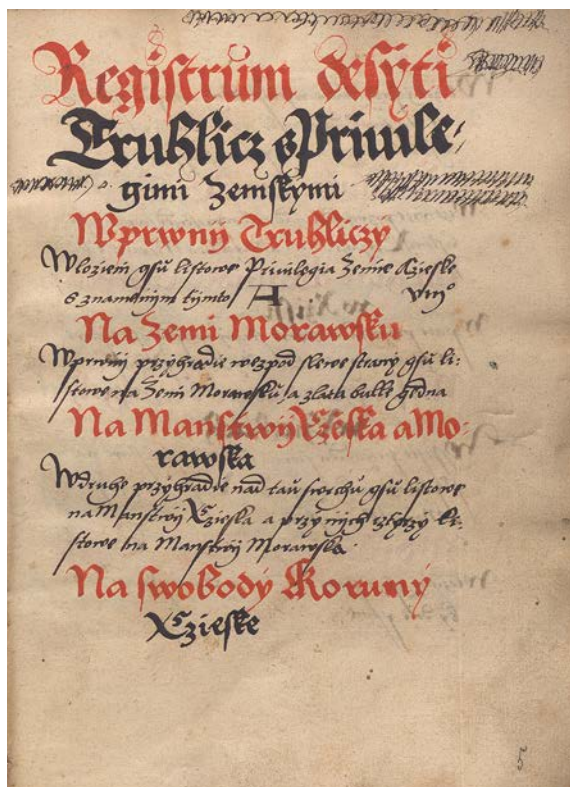 Registrum desyti
Truhlicz s Priuile-
gimi Zemskymi
W prwny Truhliczy
Wlozieni gsu listowe Privilegia Zemie Czieske
s znamenim tymto A
Na Zemi Morawsku
W prwnij przyhradie wezpod s lewe strany gsu li-
stowe na Zemi Morawsku, a zlata bulle gedna
Na Manstwij Czieska a Mo-
rawska
W druhe przyhradie nad tau swrchu gsu listowe
na Manstwij Czieska a przy nych cztyrzy li-
stowe na Manstwij Morawska.
Na swobody Koruny
Czieske
5